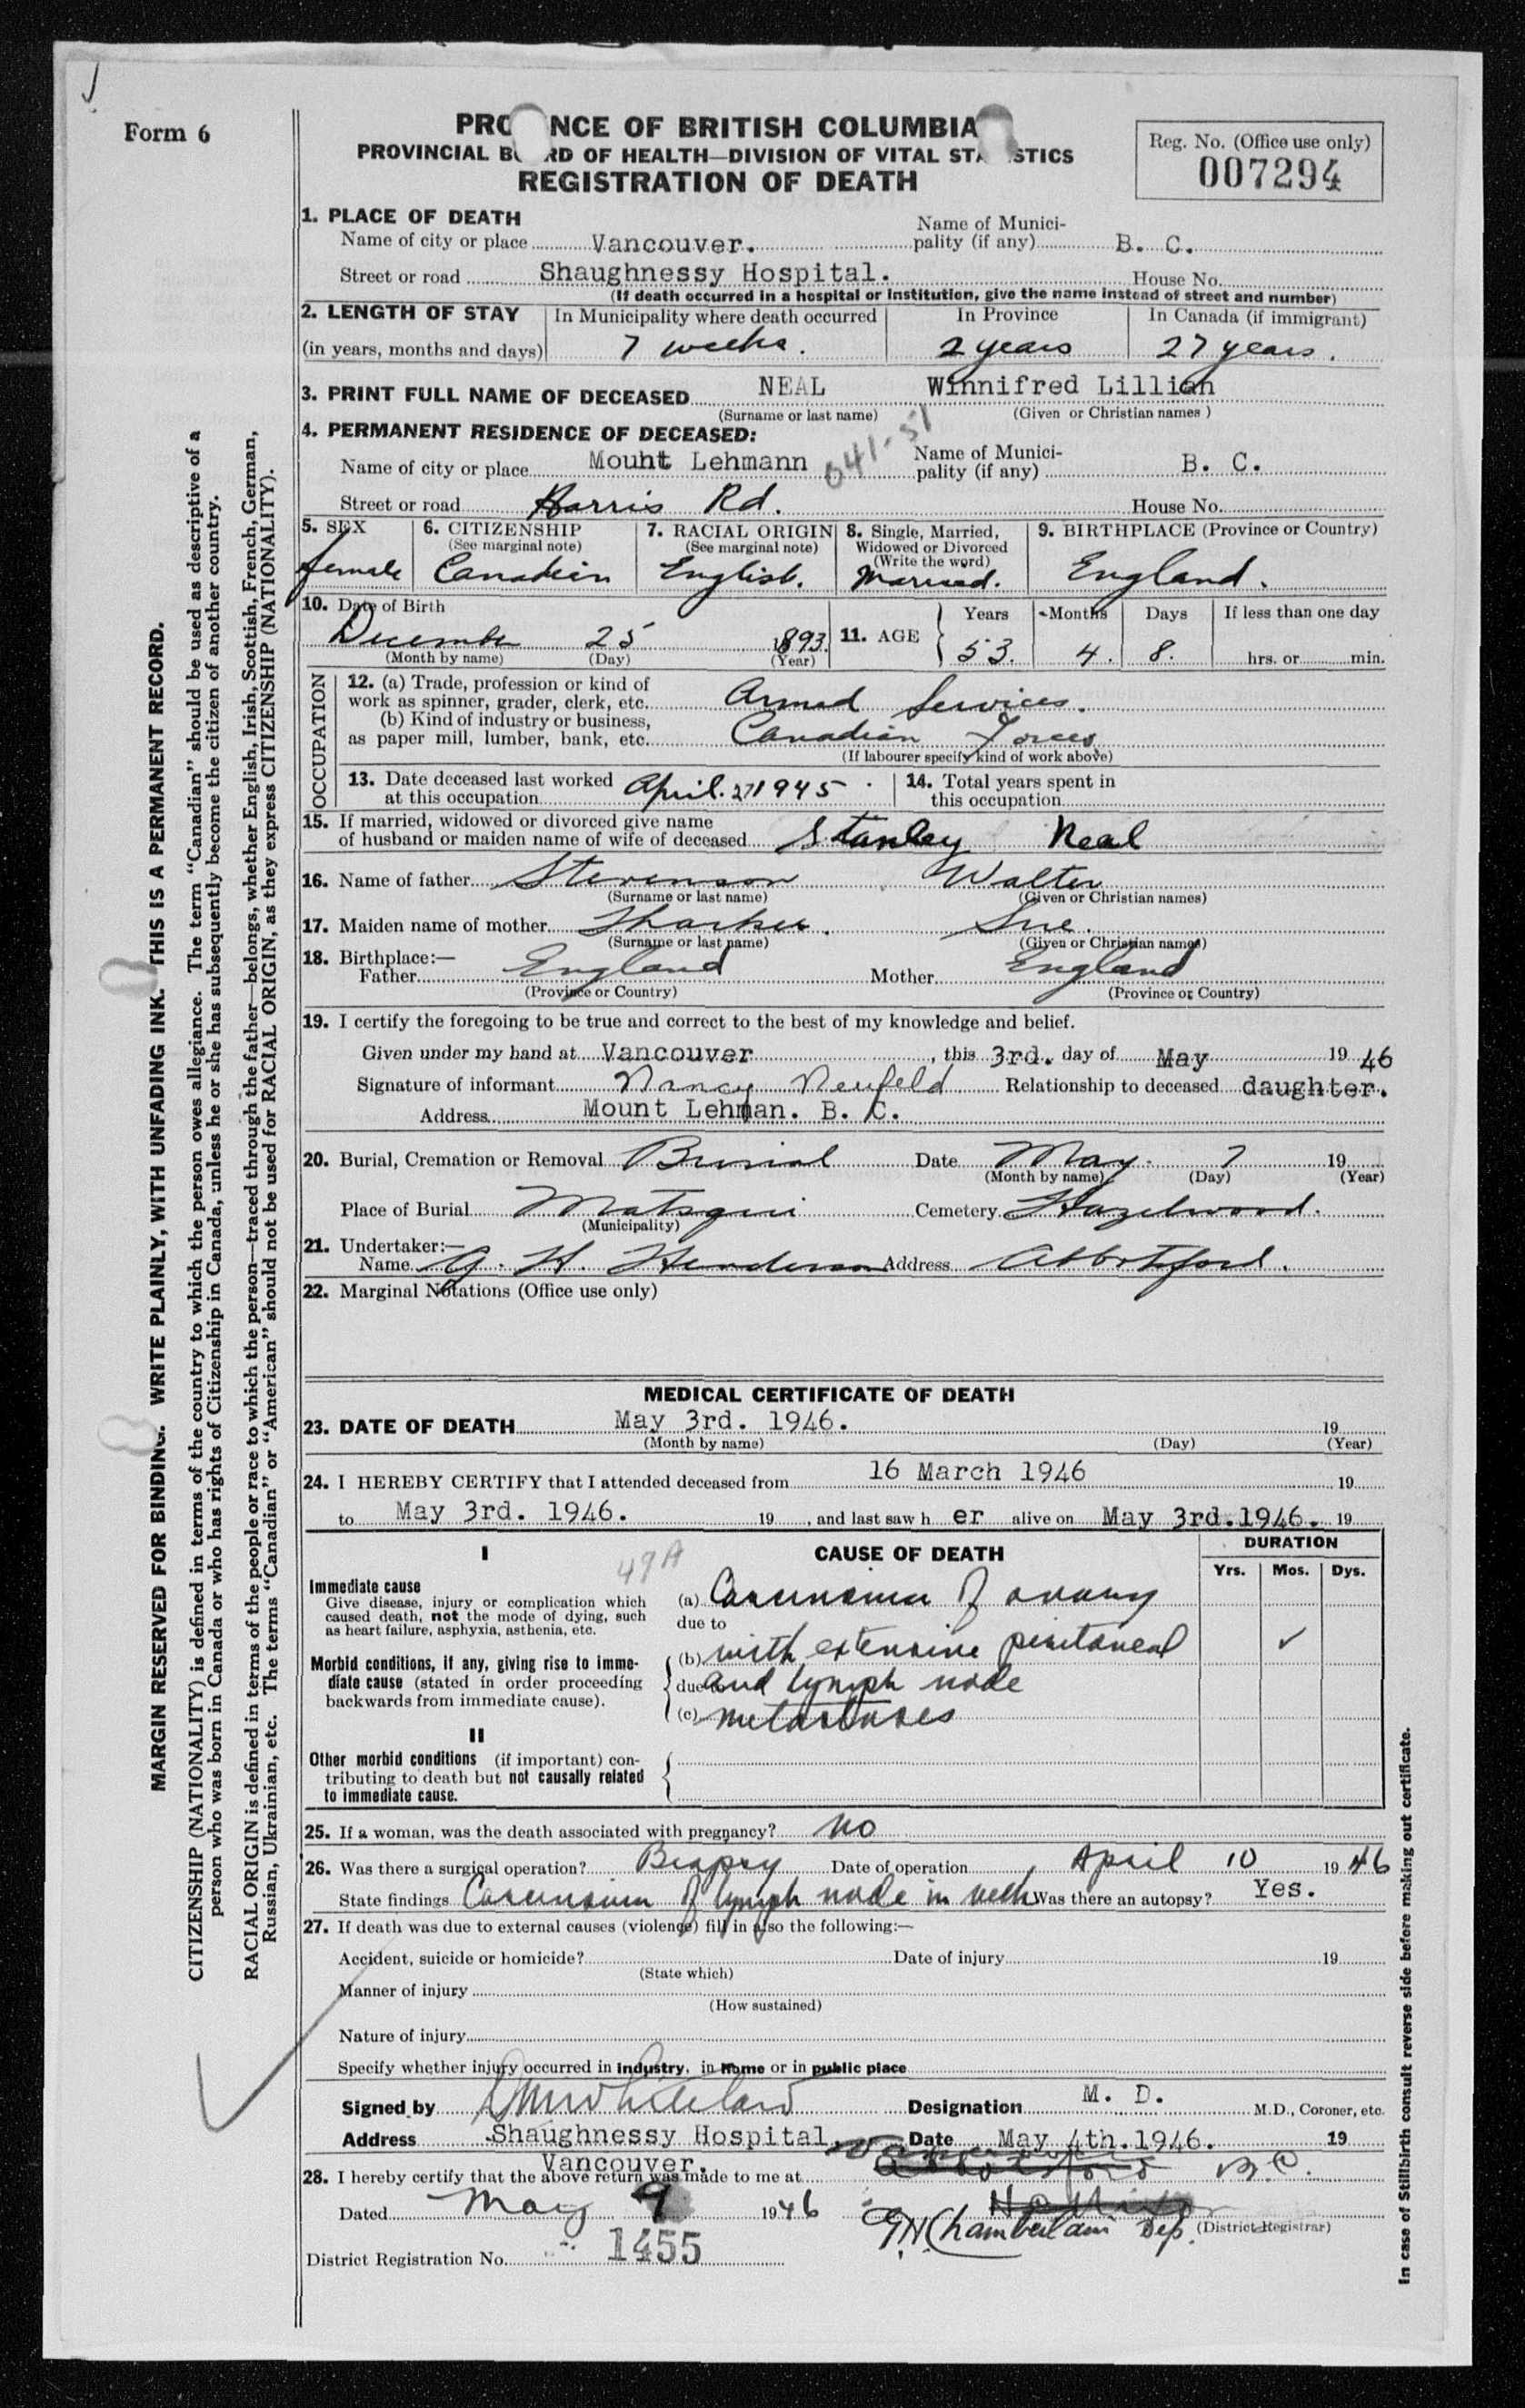 Form 6
PRO NCE OF BRITISH COLUMBIA
PROVINCIAL BO RD OF HEALTH—DIVISION OF VITAL STA STICS
REGISTRATION OF DEATH
Reg. No. (Office use only)
007294
1. PLACE OF DEATH
Name of city or place Vancouver. Name of Munici-pality (if any) B. C.
Street or road Shaughnessy Hospital. House No.
(If death occurred in a hospital or institution, give the name instead of street and number)
2. LENGTH OF STAY In Municipality where death occurred In Province In Canada (if immigrant)
(in years, months and days) 7 weeks. 2 years 27 years.
3. PRINT FULL NAME OF DECEASED NEAL Winnifred Lillian
(Surname or last name) (Given or Christian names )
4. PERMANENT RESIDENCE OF DECEASED: 041-51
Name of city or place Mount Lehmann Name of Munici-pality (if any) B. C.
Street or road Harris Rd. House No.
5. SEX 6. CITIZENSHIP 7. RACIAL ORIGIN 8. Single, Married, 9. BIRTHPLACE (Province or Country)
(See marginal note) (See marginal note) Widowed or Divorced
(Write the word)
female Canadian English. Married. England.
10. Date of Birth 11. AGE Years Months Days If less than one day
December 25 1893. 53. 4. 8. hrs. or min.
(Month by name) (Day) (Year)
OCCUPATION
12. (a) Trade, profession or kind of
work as spinner, grader, clerk, etc. Armed Services.
(b) Kind of industry or business,
as paper mill, lumber, bank, etc. Canadian Forces
(If labourer specify kind of work above)
13. Date deceased last worked 14. Total years spent in
at this occupation April. 27 1945. this occupation
15. If married, widowed or divorced give name
of husband or maiden name of wife of deceased Stanley Neal
16. Name of father Stevenson Walter
(Surname or last name) (Given or Christian names)
17. Maiden name of mother Sue.
(Surname or last name) (Given or Christian names)
18. Birthplace:—
Father England Mother England
(Province or Country) (Province or Country)
19. I certify the foregoing to be true and correct to the best of my knowledge and belief.
Given under my hand at Vancouver , this 3rd. day of May 19 46
Signature of informant Nancy Neufeld Relationship to deceased daughter.
Address Mount Lehman. B. C.
20. Burial, Cremation or Removal Burial Date May. 7 19
(Month by name) (Day) (Year)
Place of Burial Matsqui Cemetery Hazelwood.
(Municipality)
21. Undertaker:—
Name G. H. Henderson Address Abbotsford.
22. Marginal Notations (Office use only)
MEDICAL CERTIFICATE OF DEATH
23. DATE OF DEATH May 3rd. 1946. 19
(Month by name) (Day) (Year)
24. I HEREBY CERTIFY that I attended deceased from 16 March 1946 19
to May 3rd. 1946. 19 , and last saw h er alive on May 3rd.1946. 19
I 49A CAUSE OF DEATH DURATION
Yrs. Mos. Dys.
Immediate cause
Give disease, injury or complication which (a) Carcinoma of ovary
caused death, not the mode of dying, such due to
as heart failure, asphyxia, asthenia, etc.
(b) with extensive peritoneal ✓
Morbid conditions, if any, giving rise to imme-
diate cause (stated in order proceeding due to and lymph node
backwards from immediate cause).
(c) metastases
II
Other morbid conditions (if important) con-
tributing to death but not causally related
to immediate cause.
25. If a woman, was the death associated with pregnancy? No
26. Was there a surgical operation? Biopsy Date of operation April 10 19 46
State findings Carcinoma of lymph node in neck Was there an autopsy? Yes.
27. If death was due to external causes (violence) fill in also the following:—
Accident, suicide or homicide? Date of injury 19
(State which)
Manner of injury
(How sustained)
Nature of injury
Specify whether injury occurred in industry, in home or in public place
Signed by Designation M. D. M.D., Coroner, etc.
Address Shaughnessy Hospital, Date May 4th.1946. 19
Vancouver.
28. I hereby certify that the above return was made to me at Abbotsford B.C.
Dated May 9 19 46
G.N. Chamberlain Dep. (District Registrar)
District Registration No. 1455
MARGIN RESERVED FOR BINDING. WRITE PLAINLY, WITH UNFADING INK. THIS IS A PERMANENT RECORD.
CITIZENSHIP (NATIONALITY) is defined in terms of the country to which the person owes allegiance. The term "Canadian" should be used as descriptive of a
person who was born in Canada or who has rights of Citizenship in Canada, unless he or she has subsequently become the citizen of another country.
RACIAL ORIGIN is defined in terms of the people or race to which the person—traced through the father—belongs, whether English, Irish, Scottish, French, German,
Russian, Ukrainian, etc. The terms "Canadian" or "American" should not be used for RACIAL ORIGIN, as they express CITIZENSHIP (NATIONALITY).
In case of Stillbirth consult reverse side before making out certificate.